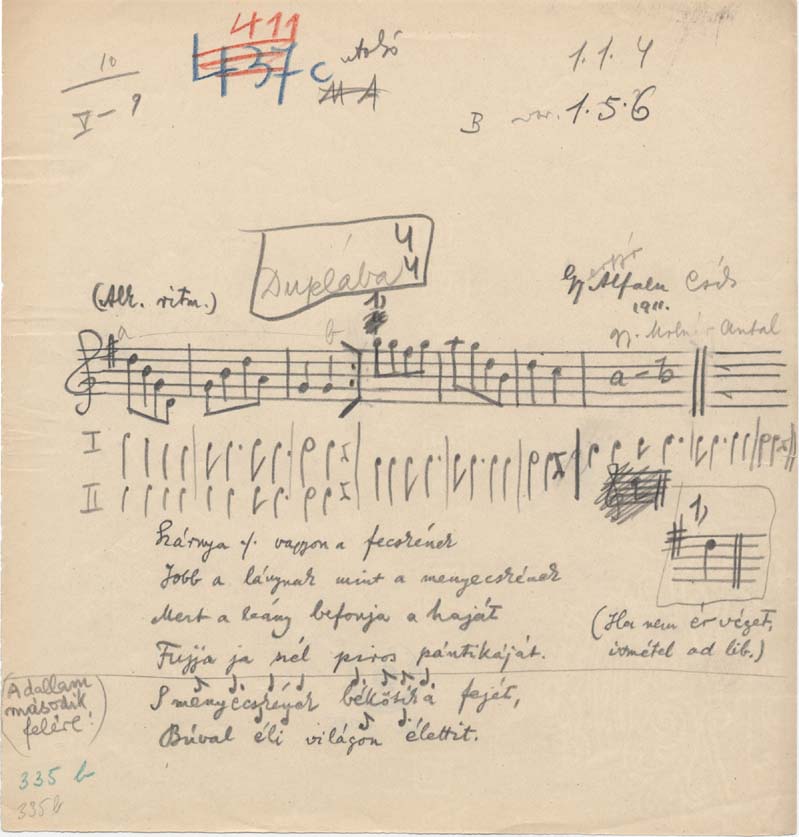 10
V - 9
411
437 c utolsó
M A
1. 1. 4
B var. 1. 5. 6
Duplába 4 4
(Alk. ritm.)
Gyergyó Alfalu Csík
1911.
gy. Molnár Antal
a b 1)
a - b
I
II
1)
Szárnya ·/. vagyon a fecskének
Jobb a lánynak mint a menyecskének
Mert a leány befonja a haját
Fujja ja szél piros pántikáját.
(Ha nem ér véget,
ismétel ad lib.)
(A dallam
második
felére!)
S menyecskének békötik a fejét,
Búval éli világon élettit.
335 b
335 b